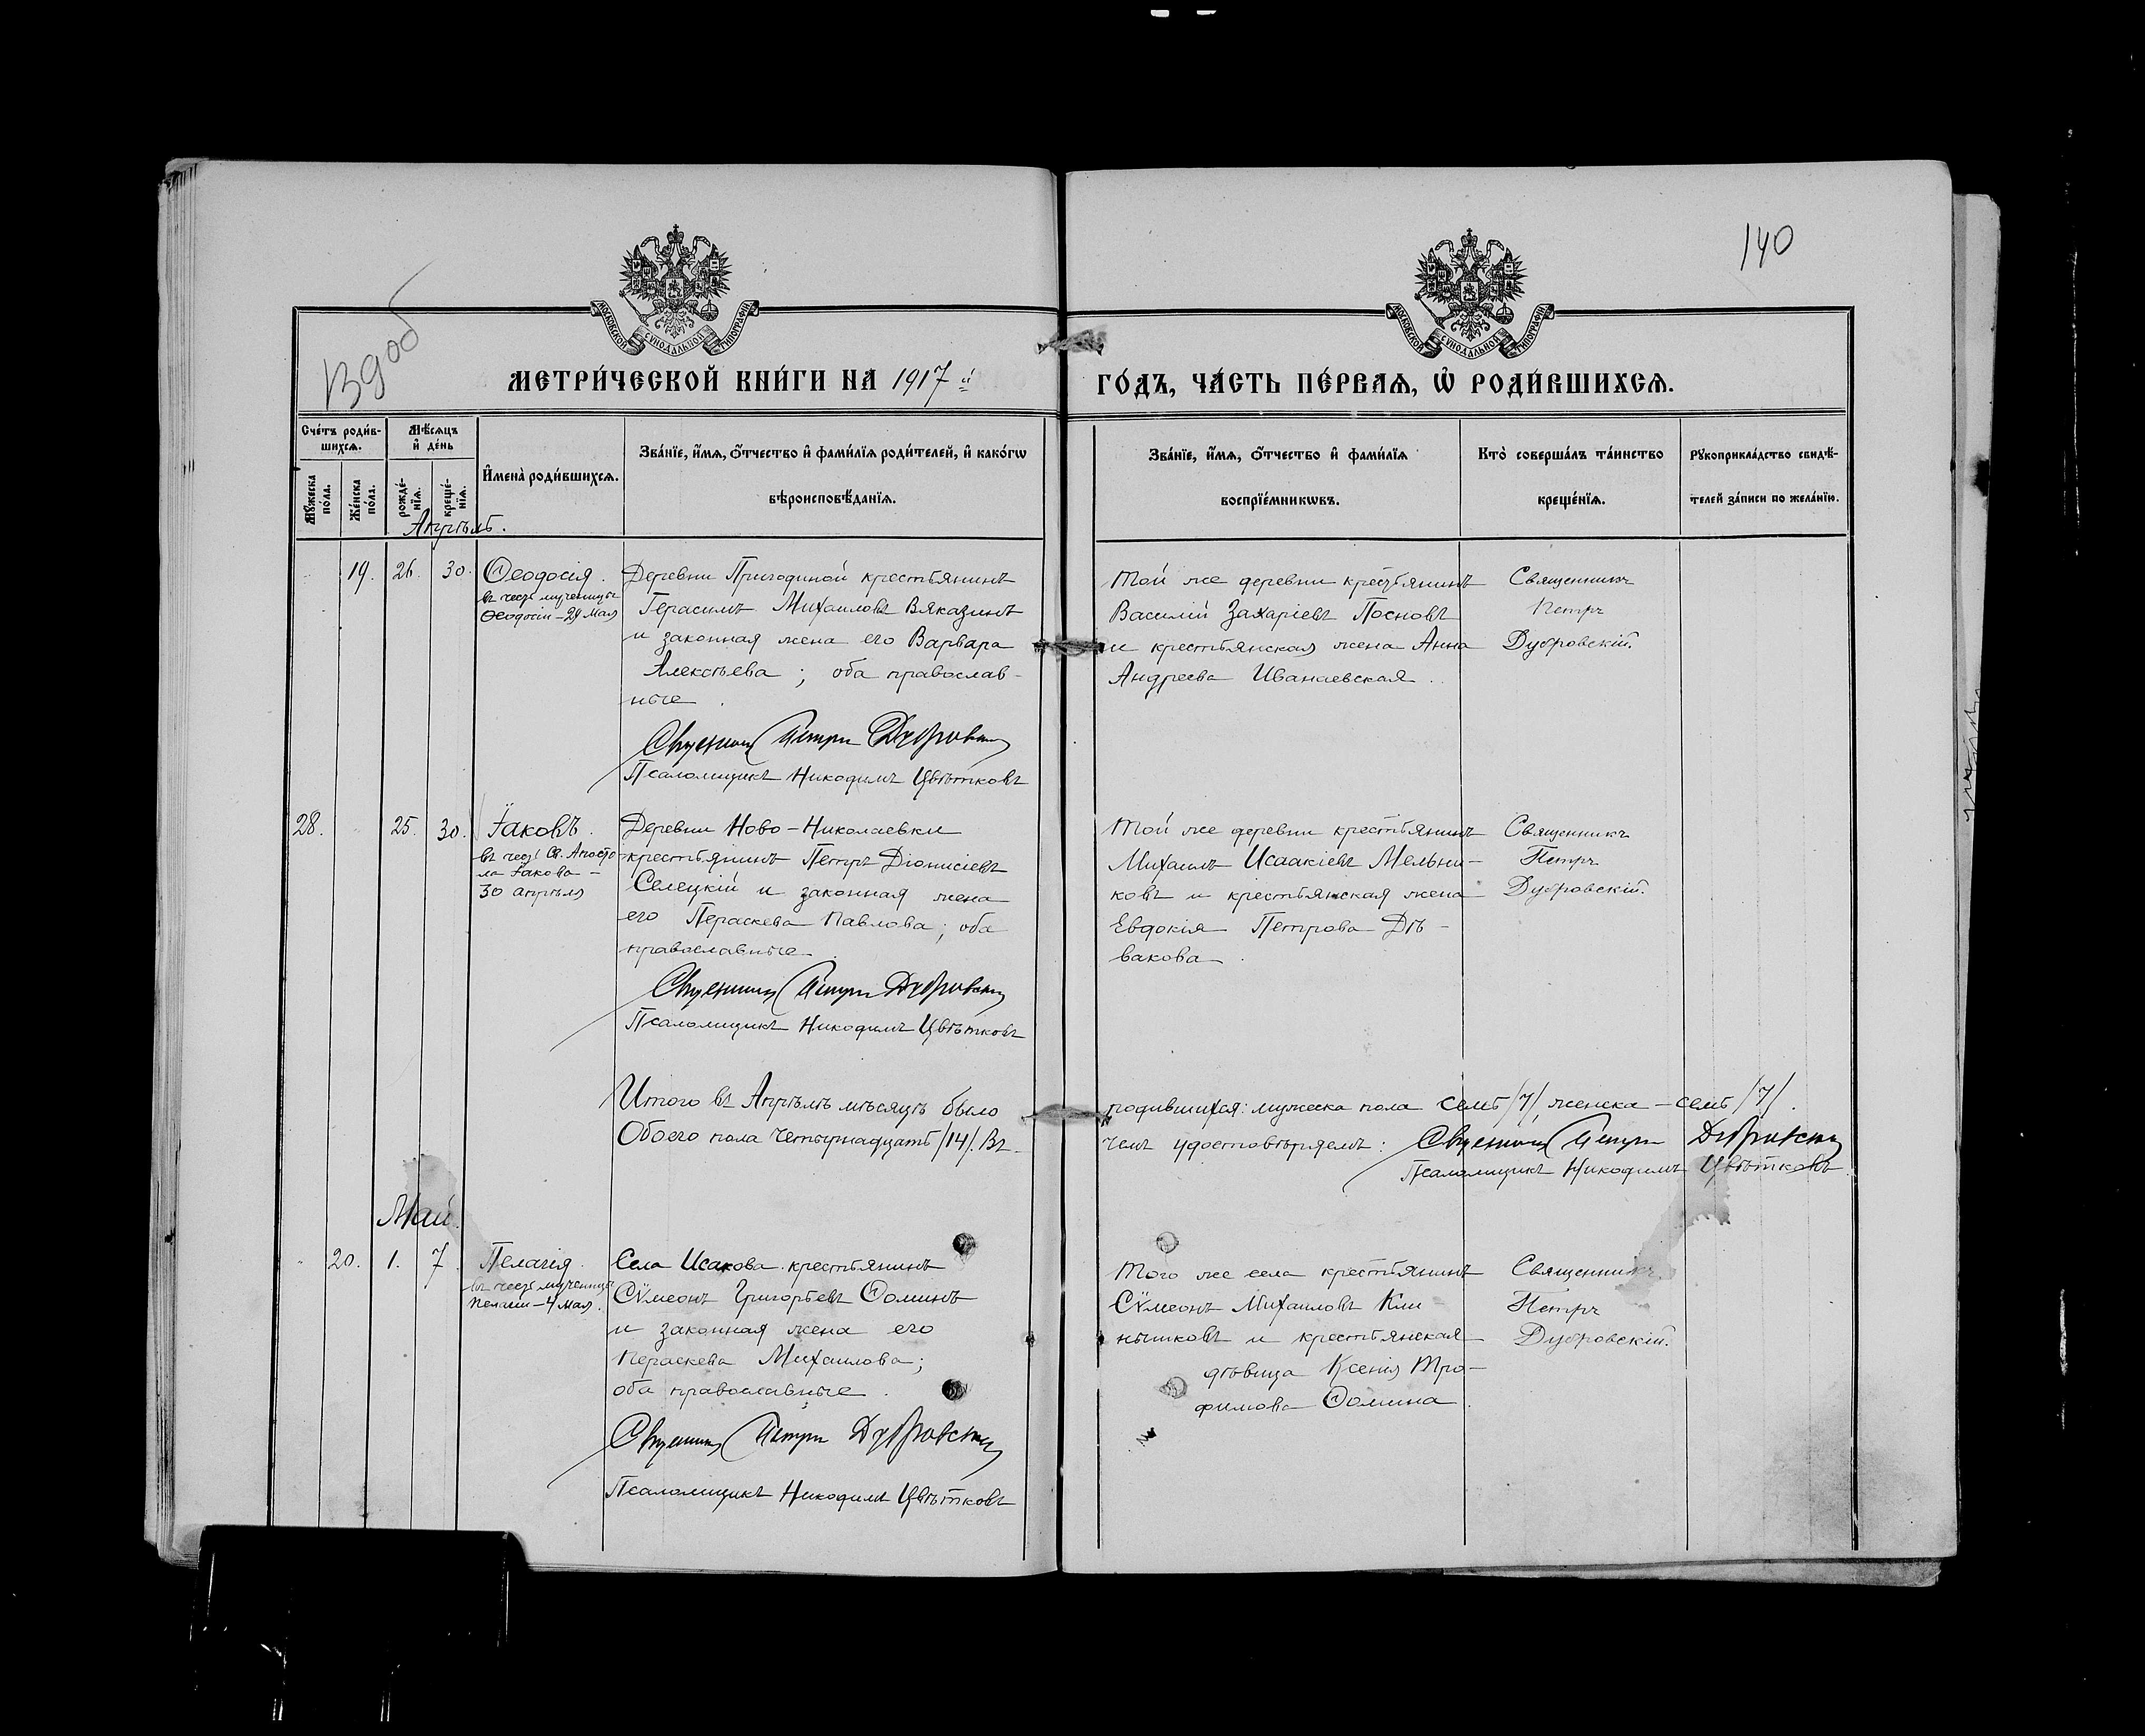 140
МОСКОВСКОЙ СѴНОДАЛЬНОЙ ТИПОГРАФІИ
МОСКОВСКОЙ СѴНОДАЛЬНОЙ ТИПОГРАФІИ
МЕТРИ́ЧЕСКОЙ КНИ́ГИ НА 1917 й
ГО́ДЪ, ЧА́СТЬ ПЕ́РВАѦ, Ѽ РОДИ́ВШИХСѦ.
Сче́тъ роди́в-
шихсѧ.
Мѣ́сѧцъ
и҆ де́нь
Мꙋ́жеска по́ла.
Же́нска по́ла.
рожде́-нїѧ.
креще́-нїѧ.
И҆мена̀ роди́вшихсѧ.
Зва́нїе, и҆́мѧ, о҆́тчество и҆ фами́лїѧ роди́телей, и҆ како́гѡ
вѣроисповѣ́данїѧ.
Зва́нїе, и҆́мѧ, о҆́тчество и҆ фами́лїѧ
воспрїе́мникѡвъ.
Кто̀ соверша́лъ та́инство
креще́нїѧ.
Рꙋкоприкла́дство свидѣ́-
телей за́писи по жела́нїю.
Апрѣль.
19. 26. 30. Ѳеодосія.
въ честь мученицы
Ѳеодосіи – 29 Мая
Деревни Пригодиной крестьянинъ
Герасимъ Михаиловъ Вяказинъ
и законная жена его Варвара
Алексѣева; оба православ-
ные.
Священникъ Петръ Дубровскій
Псаломщикъ Никодимъ Цвѣтковъ
Той же деревни крестьянинъ
Василій Захаріевъ Посновъ
и крестьянская жена Анна
Андреева Иванаевская.
Священникъ
Петръ
Дубровскій.
28. 25. 30. Іаковъ.
въ честь Св. Апосто-
ла Іакова –
30 апрѣля
Деревни Ново-Николаевки
крестьянинъ Петръ Діонисіевъ
Селецкій и законная жена
его Параскева Павлова; оба
православные.
Священникъ Петръ Дубровскій
Псаломщикъ Никодимъ Цвѣтковъ
Той же деревни крестьянинъ
Михаилъ Исаакіевъ Мельни-
ковъ и крестьянская жена
Евдокія Петрова Дѣ-
вакова.
Священникъ
Петръ
Дубровскій.
Итого въ Апрѣлѣ мѣсяцѣ было
родившихся: мужеска пола семь /7/, женска – семь /7/.
Обоего пола четырнадцать /14/. Въ
чемъ удостовѣряемъ: Священникъ Петръ Дубровскій
Псаломщикъ Никодимъ Цвѣтковъ
Май.
20. 1. 7. Пелагія.
въ честь мученицы
Пелагіи – 4 мая.
Села Исакова крестьянинъ
Сѵмеонъ Григорьевъ Ѳоминъ
и законная жена его
Параскева Михаилова;
оба православные.
Священникъ Петръ Дубровскій
Псаломщикъ Никодимъ Цвѣтковъ
Того же села крестьянинъ
Сѵмеонъ Михаиловъ Кли-
нышковъ и крестьянская
дѣвица Ксенія Тро-
фимова Ѳомина.
Священникъ
Петръ
Дубровскій.